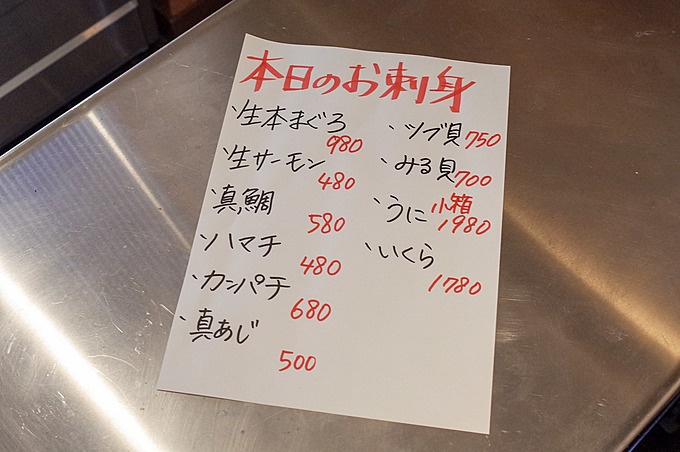 本日のお刺身
、生本まぐろ
980
、生サーモン
480
、真鯛
580
、ハマチ
480
、カンパチ
680
、真あじ
500
、ツブ貝 750
、みる貝 700
、うに 小箱
1980
、いくら
1780